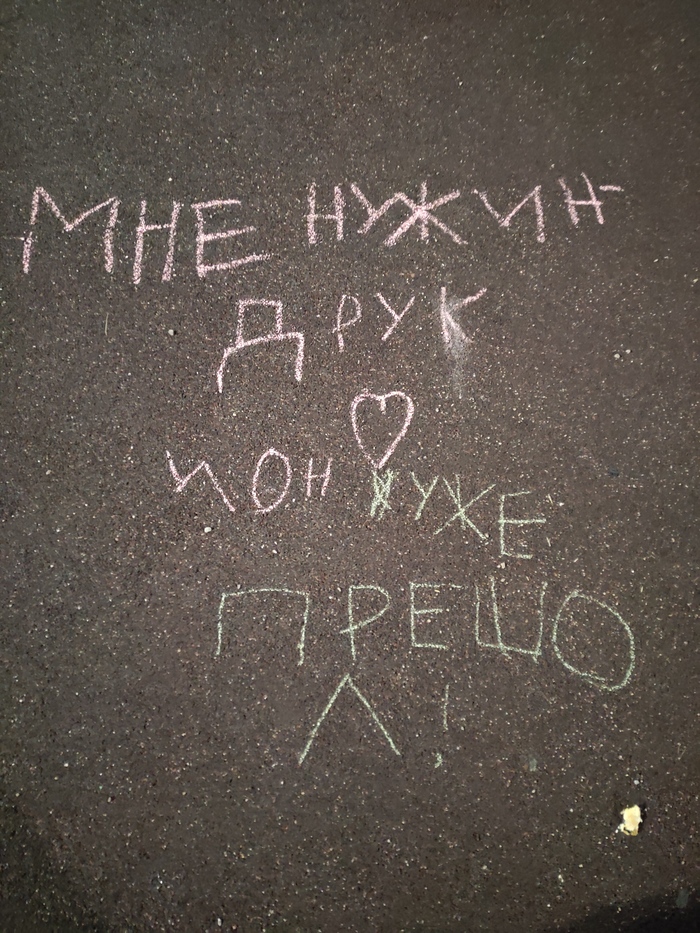 МНЕ НУЖИН
ДРУК
ИОН УЖЕ
ПРЕШО
Л!